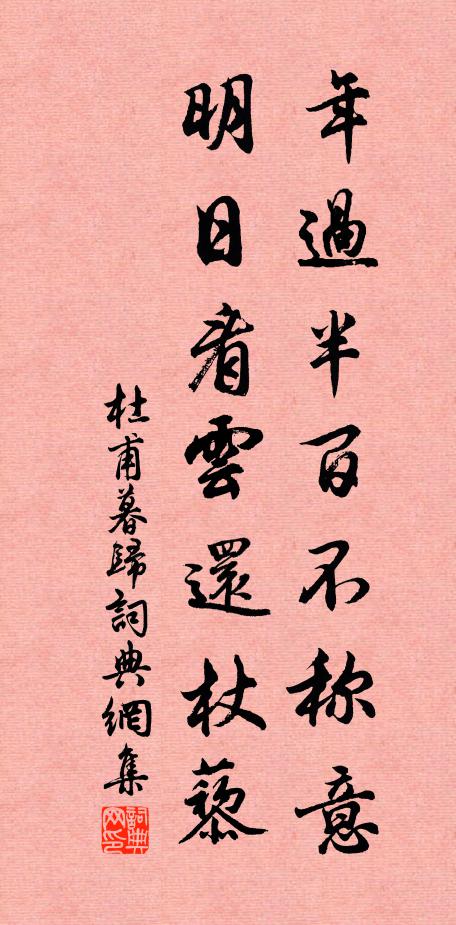 年過半百不称意
明日看雲還杖藜
杜甫暮歸詞典網集
詞典網印